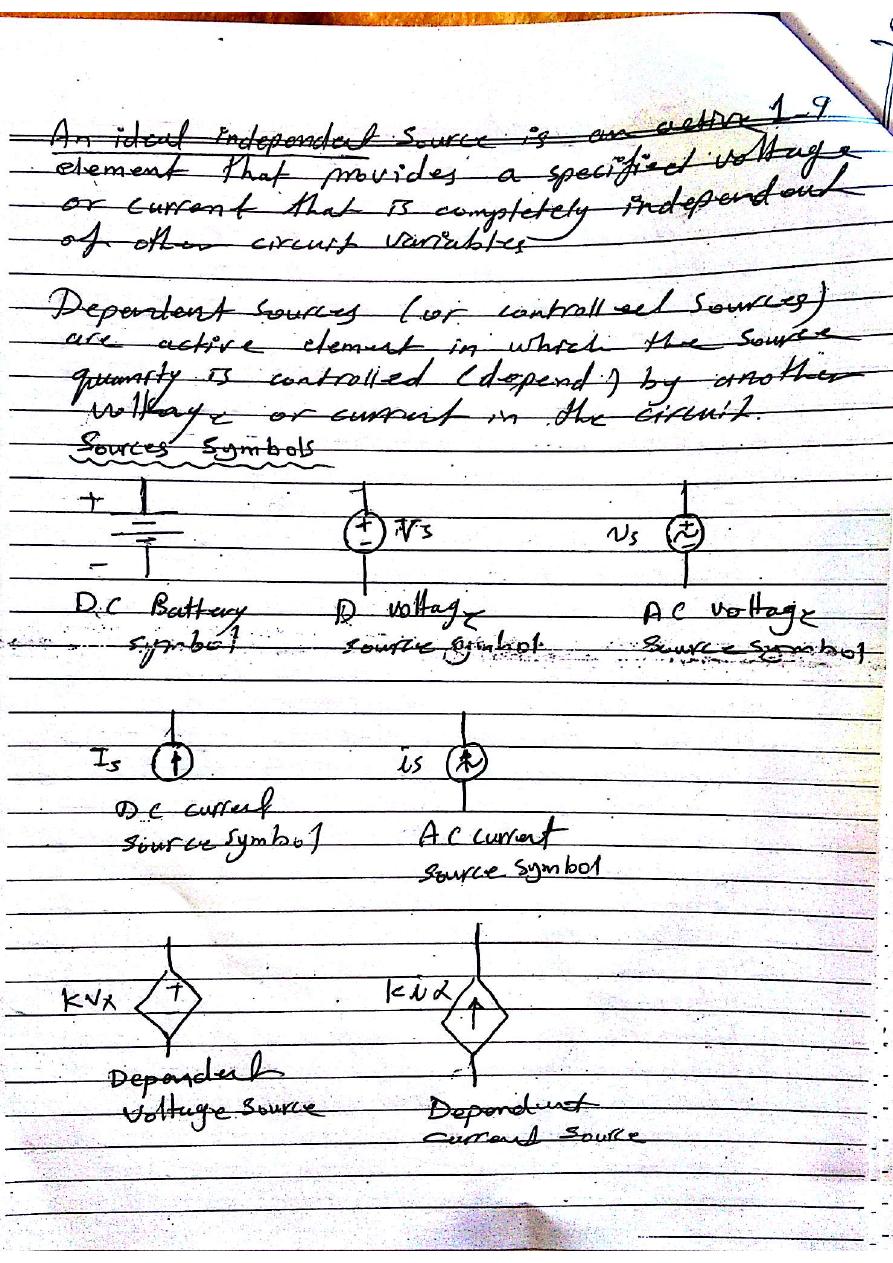 1-9
An ideal independent source is an active
element that provides a specified voltage
or current that is completely independent
of other circuit variables
Dependent sources (or controlled sources)
are active element in which the source
quantity is controlled (depend) by another
voltage or current in the circuit.
Sources Symbols
+
-
+
-
Vs
vs
+
-
D.C Battery
symbol
D voltage
source symbol
AC voltage
source symbol
Is
is
DC current
source symbol
AC current
source symbol
kvx
+
kix
Dependent
voltage source
Dependent
current source